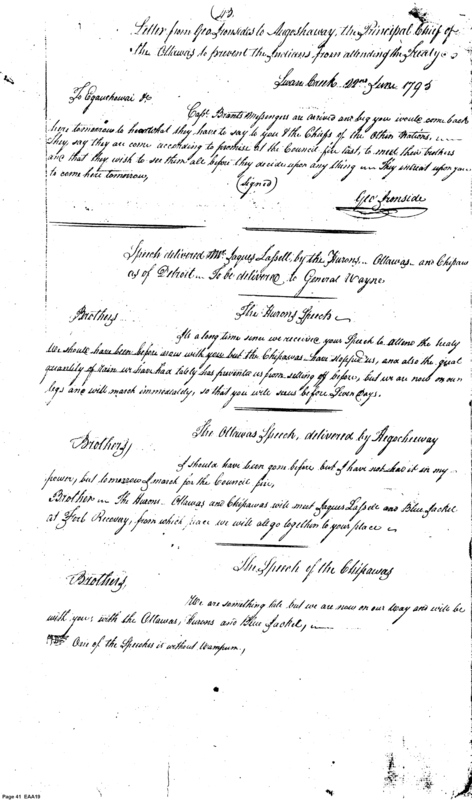 43.
Letter from Geo Ironsides to Augoshaway, the Principal Chief of
the Ottawas to prevent the Indians from attending the Treaty
Swan Creek 22nd June 1795
To Egauchewai &c
Capt. Brants Messengers are arrived and beg you would come back
here tomorrow to hear what they have to say to you & the Chiefs of the other Nations,
They say they are come according to promise at the Council fire last, to meet their brothers
and that they wish to see them all before they decide upon any thing They intreat upon you
to come here tomorrow,
(Signed)
Geo Ironside
Speech delivered Mr. Jaques Lassell by the Hurons Ottawas and Chipaw
as of Detroit To be delivered to General Wayne
Brothers
The Hurons Speech
Its a long time since we received your Speech to attend the treaty
We should have been before now with you but the Chipawas have stopped us, and also the great
quantity of rain we have had lately has prevented us from setting off before, but we are now on our
legs and will march immediately, so that you will see us before Seven days.
The Ottawas Speech, delivered by Aegocheeway
Brothers,
I should have been gone before but I have not had it in my
power, but tomorrow I march for the Council fire,
Brother The Hurons Ottawas and Chipawas will meet Jaques Lasselle and Blue Jacket
at Fort Recovery, from which place we will all go together to your place
The Speech of the Chipawas
Brothers
We are something late but we are now on our way and will be
with you with the Ottawas, Hurons and Blue Jacket,
One of the Speeches is without Wampum,
Page 41 EAA19